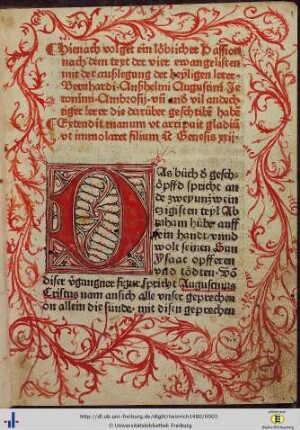 Hienach volget ein löblicher Passion
nach dem text der vier ewangelisten
mit der auszlegung der heyligen lerer
Bernhardi Anshelmi Augustini Je
ronimi Ambrosij vñ and vil andech
tiger lerer die darüber geschribē habē
Extendit manum vt arripait gladiū
vt immolaret filium sc̄ Genesis xxij
DAs bůch d̄ gesch
öpffd spricht an
dē zweyundzwein
czigisten teyl Ab
raham hůbe auff
sein handt vnnd
wolt seinen Sun
Ysaac opfferen
vnd tödten Vō
diser v̄gangner figur spricht Augustinus
Cristus nam an sich alle vnser geprechen
on allein die sünde mit disen geprechen
http://dl.ub.uni-freiburg.de/diglit/heinrich1480/0003
© Universitätsbibliothek Freiburg